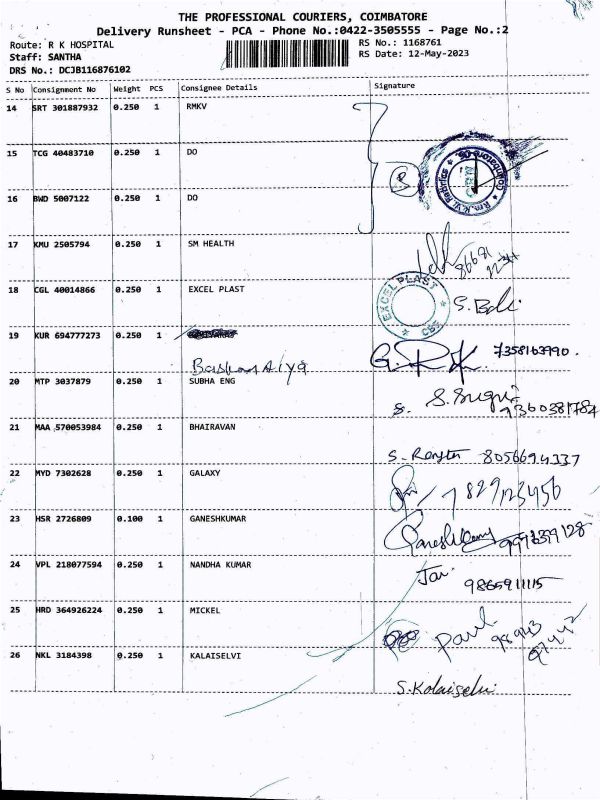 THE PROFESSIONAL COURIERS, COIMBATORE
Delivery Runsheet - PCA - Phone No.:0422-3505555 - Page No.:2
Route: R K HOSPITAL
RS No.: 1168761
Staff: SANTHA
RS Date: 12-May-2023
DRS No.: DCJB116876102
S No Consignment No Weight PCS Consignee Details Signature
14 SRT 301887932 0.250 1 RMKV
15 TCG 40483710 0.250 1 DO
16 BWD 5007122 0.250 1 DO
17 KMU 2505794 0.250 1 SM HEALTH
18 CGL 40014866 0.250 1 EXCEL PLAST
EXCEL PLAST
19 KUR 694777273 0.250 1 7358163990.
20 MTP 3037879 0.250 1 SUBHA ENG
9360381784
21 MAA 570053984 0.250 1 BHAIRAVAN
8056694337
22 MYD 7302628 0.250 1 GALAXY
7829123456
23 HSR 2726809 0.100 1 GANESHKUMAR
24 VPL 218077594 0.250 1 NANDHA KUMAR
Jai 9865911115
25 HRD 364926224 0.250 1 MICKEL
Paul 98943
97442
26 NKL 3184398 0.250 1 KALAISELVI
S.Kalaiselvi